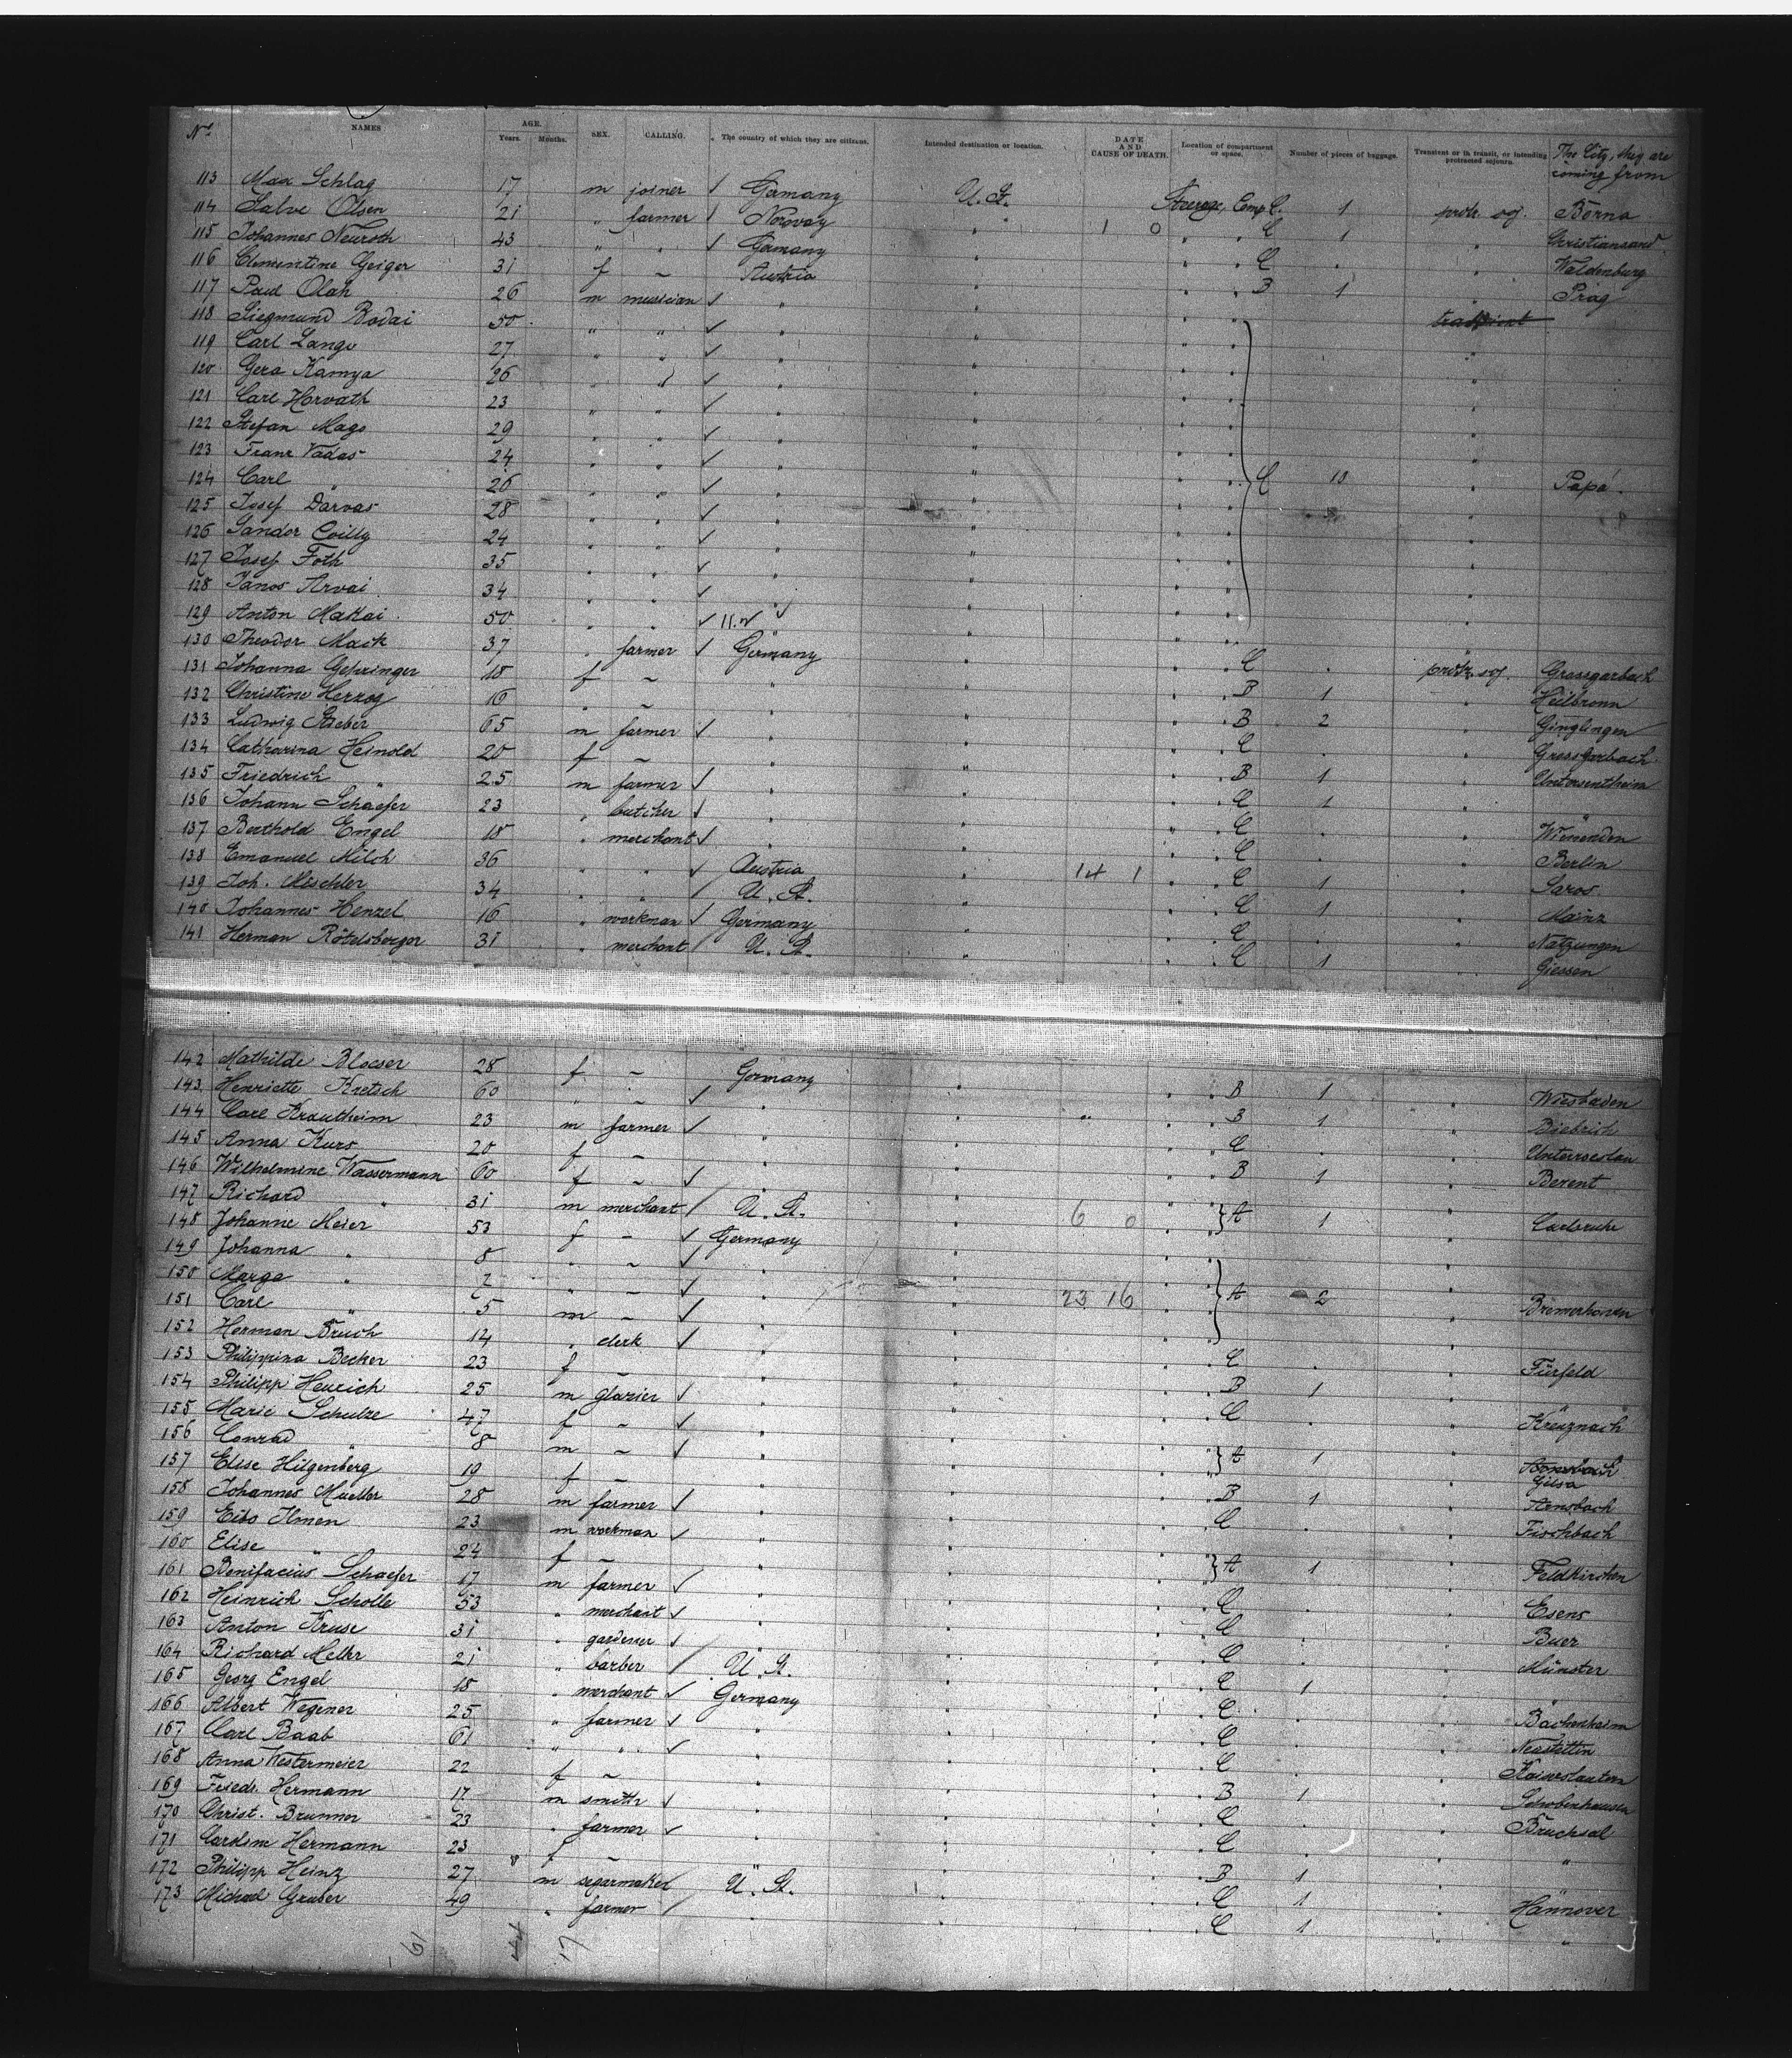 No. NAMES AGE. Years. Months. SEX. CALLING. The country of which they are citizens. Intended destination or location. DATE AND CAUSE OF DEATH. Location of compartment or space. Number of pieces of baggage. Transient or in transit, or intending protracted sojourn. The City, they are coming from
113 Max Schlag 17 m joiner Germany U. St. Steerage, Comp C. 1 protr. soj. Borna
114 Salve Olsen 21 " farmer Norway " 1 0 " " C 1 " Christiansand
115 Johannes Neuroth 43 " " Germany " " " C " " Waldenburg
116 Clementine Geiger 31 f - Austria " " " B 1 " Prag
117 Paul Olah 26 m musician " " " " transient
118 Siegmund Bodai 50 " " " " " " "
119 Carl Lange 27 " " " " " " "
120 Gera Kamya 26 " " " " " " "
121 Carl Horvath 23 " " " " " " "
122 Stefan Mago 29 " " " " " " "
123 Franz Vadas 24 " " " " " " "
124 Carl " 26 " " " " " " C 10 " Papá.
125 Josef Darvas 28 " " " " " " "
126 Sandor Coilly 24 " " " " " " "
127 Josef Foth 35 " " " " " " "
128 Janos Arvai 34 " " " " " " "
129 Anton Makai 50 " " " " " " "
130 Theodor Mack 37 " farmer Germany " " " C " protr. soj. Grossgarbach
131 Johanna Gehringer 18 f - " " " " B 1 " Heilbronn
132 Christine Herzog 16 " - " " " " B 2 " Ginglingen
133 Ludwig Stieber 65 m farmer " " " " C " " Grossgarbach
134 Catharina Heinold 20 f - " " " " B 1 " Untersontheim
135 Friedrich " 25 m farmer " " " " C 1 " "
136 Johann Schaefer 23 " butcher " " " " C " " Winenden
137 Berthold Engel 18 " merchant " " " " C " " Berlin
138 Emanuel Milch 36 " " Austria " 14 1 " " C 1 " Saros
139 Joh. Mischler 34 " " U. St. " " " C 1 " Mainz
140 Johannes Henzel 16 " workman Germany " " " C " " Natzungen
141 Herman Rötelsberger 31 " merchant U. St. " " " C 1 " Giessen
142 Mathilde Bloeser 28 f - Germany " " " B 1 " Wiesbaden
143 Henriette Kretsch 60 " - " " " " B 1 " Biebrich
144 Carl Krautheim 23 m farmer " " " " C " "
145 Anna Kurs 20 f - " " " " B 1 " Berent
146 Wilhelmine Wassermann 60 f - " " " "
147 Richard " 31 m merchant U. St. " 6 0 " " A 1 " Carlsruhe
148 Johanne Meier 53 f - Germany " " " "
149 Johanna " 8 " - " " " " "
150 Marga " 2 " - " " 23 16 " " A 2 " Bremerhaven
151 Carl " 5 m - " " " " "
152 Herman Bruch 14 " clerk " " " " C " " Fürfeld
153 Philippina Becker 23 f - " " " " B 1 " "
154 Philipp Heurich 25 m glazier " " " " C " " Kreuznach
155 Marie Schulze 47 f - " " " "
156 Conrad " 8 m - " " " " A 1 " Gilsa
157 Elise Hilgenberg 19 f - " " " " B 1 " Arnsbach
158 Johannes Mueller 28 m farmer " " " " C " " Fischbach
159 Eibo Ilmen 23 m workman " " " "
160 Elise " 24 f - " " " " A 1 " Feldkirchen
161 Bonifacius Schaefer 17 m farmer " " " " C " " Esens
162 Heinrich Scholle 53 " merchant " " " " C " " Buer
163 Anton Kruse 31 " gardener " " " " C " " Münster
164 Richard Meller 21 " barber U. St. " " " C 1 " "
165 Georg Engel 18 " merchant Germany " " " C " " Bachenheim
166 Albert Wegener 25 " farmer " " " " C " " Neustettin
167 Carl Baab 61 " " " " " " C " " Kaiserslautern
168 Anna Westermeier 22 f - " " " " B 1 " Schobenhausen
169 Friedr. Hermann 17 m smith " " " " C " " Bruchsal
170 Christ. Brunner 23 " farmer " " " " C " " "
171 Caroline Hermann 23 f - " " " " B 1 " "
172 Philipp Heinz 27 m segarmaker U. St. " " " C 1 " Hannover
173 Michael Gruber 49 " farmer " " " " C 1 " "
61 44 17